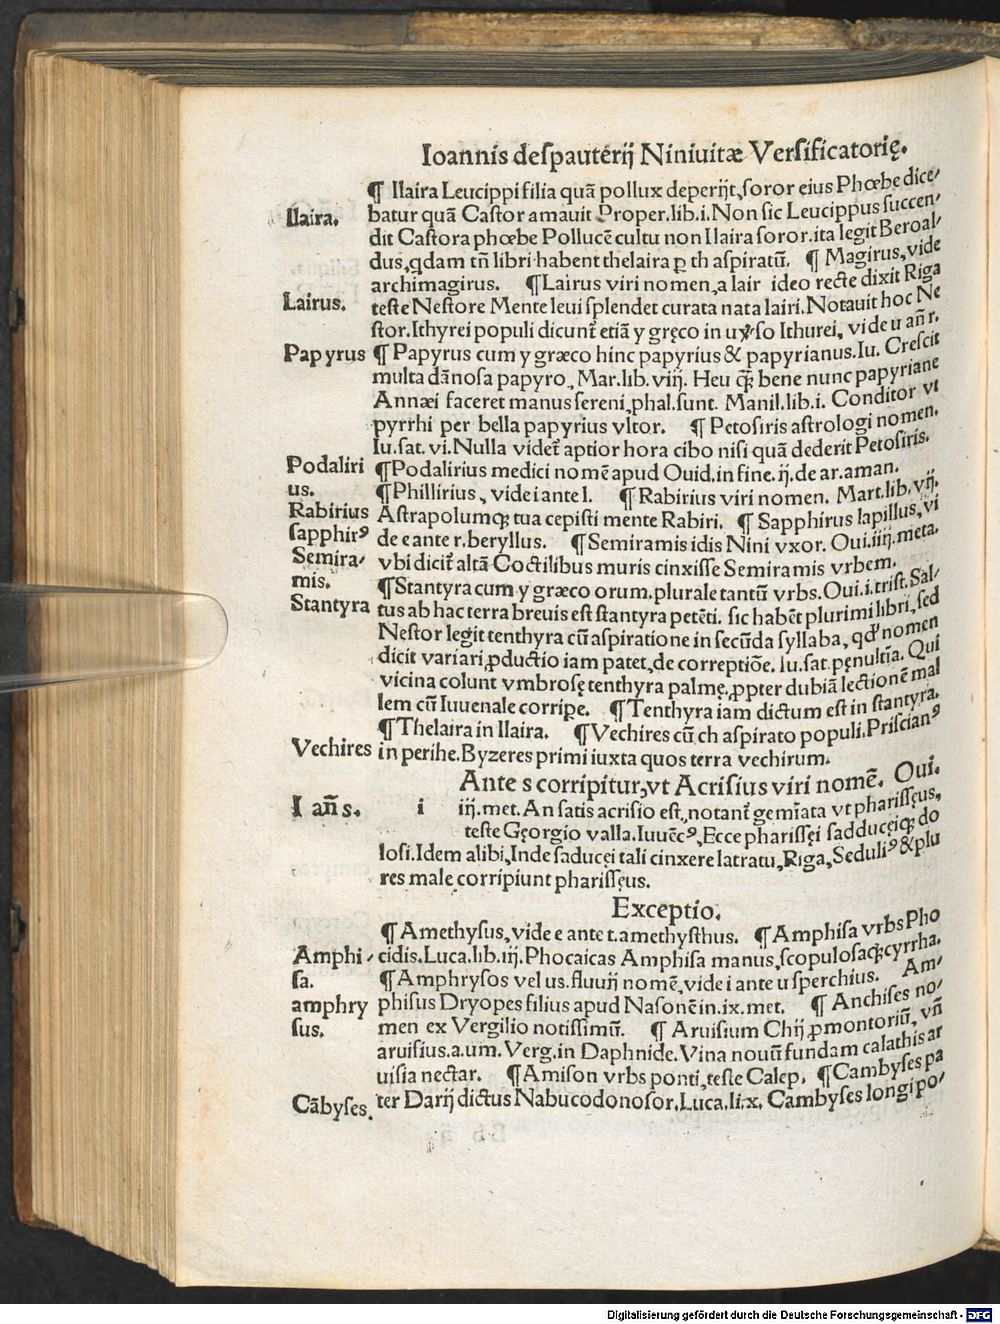 Ioannis deſpauterij Niniuitæ Verſificatorię.
¶ Ilaira Leucippi filia quā pollux deperijt, ſoror eius Phœbe dice/
Ilaira. batur quā Caſtor amauit Proper.lib.i. Non ſic Leucippus ſuccen/
dit Caſtora phœbe Pollucē cultu non Ilaira ſoror. ita legit Beroal/
dus, qdam tn̄ libri habent thelaira ꝑ th aſpiratū. ¶ Magirus, vide
archimagirus. ¶ Lairus viri nomen, a lair ideo recte dixit Riga
Lairus. teſte Neſtore Mente leui ſplendet curata nata lairi. Notauit hoc Ne
ſtor. Ithyrei populi dicunt̄ etiā y gręco in uꝟſo Ithurei, vide u an̄ r.
Papyrus ¶ Papyrus cum y græco hinc papyrius & papyrianus. Iu. Creſcit
multa dānoſa papyro, Mar.lib.viij. Heu ꝙ̄ bene nunc papyriane
Annæi faceret manus ſereni, phal.ſunt. Manil.lib.i. Conditor vt
pyrrhi per bella papyrius vltor. ¶ Petoſiris aſtrologi nomen.
Iu.ſat.vi. Nulla videt̄ aptior hora cibo niſi quā dederit Petoſiris.
Podaliri ¶ Podalirius medici nomē apud Ouid.in fine.ij.de ar.aman.
us. ¶ Phillirius, vide i ante l. ¶ Rabirius viri nomen. Mart.lib.vij.
Rabirius Aſtrapolumqꝫ tua cepiſti mente Rabiri. ¶ Sapphirus lapillus, vi
ſapphirꝰ de e ante r. beryllus. ¶ Semiramis idis Nini vxor. Oui.iiij.meta.
Semira/ vbi dicit̄ altā Coctilibus muris cinxiſſe Semiramis vrbem.
mis. ¶ Stantyra cum y græco orum. plurale tantū vrbs. Oui.i.triſt. Sal/
Stantyra tus ab hac terra breuis eſt ſtantyra petēti. ſic habēt plurimi libri, ſed
Neſtor legit tenthyra cū aſpiratione in ſecūda ſyllaba, qd' nomen
dicit variari, ꝓductio iam patet, de correptiōe. Iu.ſat.pęnultīa. Qui
vicina colunt vmbroſę tenthyra palmę, ꝓpter dubiā lectionē mal
lem cū Iuuenale corripe. ¶ Tenthyra iam dictum eſt in ſtantyra.
¶ Thelaira in Ilaira. ¶ Vechires cū ch aſpirato populi. Priſcianꝰ
Vechires in perihe. Byzeres primi iuxta quos terra vechirum.
Ante s corripitur, vt Acriſius viri nomē. Oui.
I an̄ s. i iij.met. An ſatis acriſio eſt, notant̄ gemīata vt phariſſęus,
teſte Gęorgio valla. Iuuēcꝰ, Ecce phariſſęi ſadducęiqꝫ do
loſi. Idem alibi, Inde ſaducęi tali cinxere latratu, Riga, Seduliꝰ & plu
res male corripiunt phariſſęus.
Exceptio.
¶ Amethyſus, vide e ante t. amethyſthus. ¶ Amphiſa vrbs Pho
Amphi/ cidis. Luca.lib.iij. Phocaicas Amphiſa manus, ſcopuloſaqꝫ cyrrha.
ſa. ¶ Amphryſos vel us. fluuij nomē, vide i ante u ſperchius. Am/
amphry phiſus Dryopes filius apud Naſonē in.ix.met. ¶ Anchiſes no/
ſus. men ex Vergilio notiſſimū. ¶ Aruiſium Chij ꝓmontoriū, vn̄
aruiſius.a.um. Verg.in Daphnide. Vina nouū fundam calathis ar
uiſia nectar. ¶ Amiſon vrbs ponti, teſte Calep. ¶ Cambyſes pa
Cābyſes. ter Darij dictus Nabucodonoſor. Luca.li.x. Cambyſes longi po/
Digitalisierung gefördert durch die Deutsche Forschungsgemeinschaft - DFG